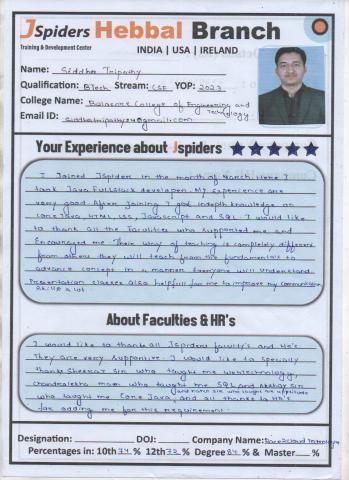 JSpiders Hebbal Branch
Training & Development Center
INDIA | USA | IRELAND
Name: Siddha Tripathy
Qualification: BTech Stream: CSE YOP: 2023
College Name: Balasore College of Engineering and Technology
Email ID:
Your Experience about Jspiders
I Joined JSpider in the month of March. Here I
took Java Fullstack developer. My experience are
very good After Joining I got indepth knowledge on
Core Java, HTML, CSS, Javascript and SQL. I would like
to thank all the Faculties who supported me and
Encouraged me Their way of teaching is completely different
from others they will teach from the fundamentals to
advance concept in a manner Everyone will understand.
Presentation classes also helpfull for me to improve my communication
skills a lot.
About Faculties & HR's
I would like to thank all Jspiders faculty's and Hr's
They are very supportive. I would like to specially
thanks Sir who taught me Webtechnology,
Chandralekha mam who taught me SQL and Akshay Sir
and Sir who taught me aptitude
who taught me Core Java, and all thanks to HR's
for adding me for this Requirement.
Designation: DOJ: Company Name: Technology
Percentages in: 10th 74 % 12th 72 % Degree 84 % & Master %